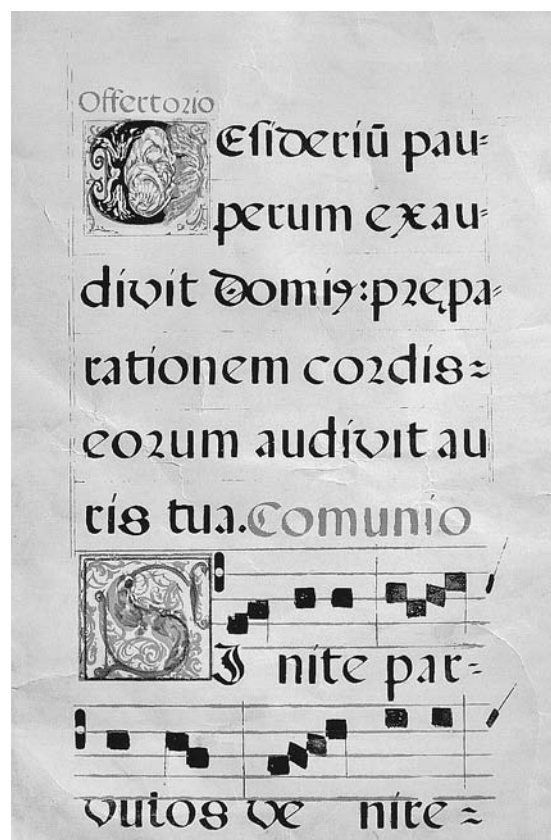 Offertorio
DEsideriū pau=
perum exau=
divit Domiꝯ: prępa=
rationem cordis=
eorum audivit au
ris tua. Comunio
SI nite par-
vulos ve nire =